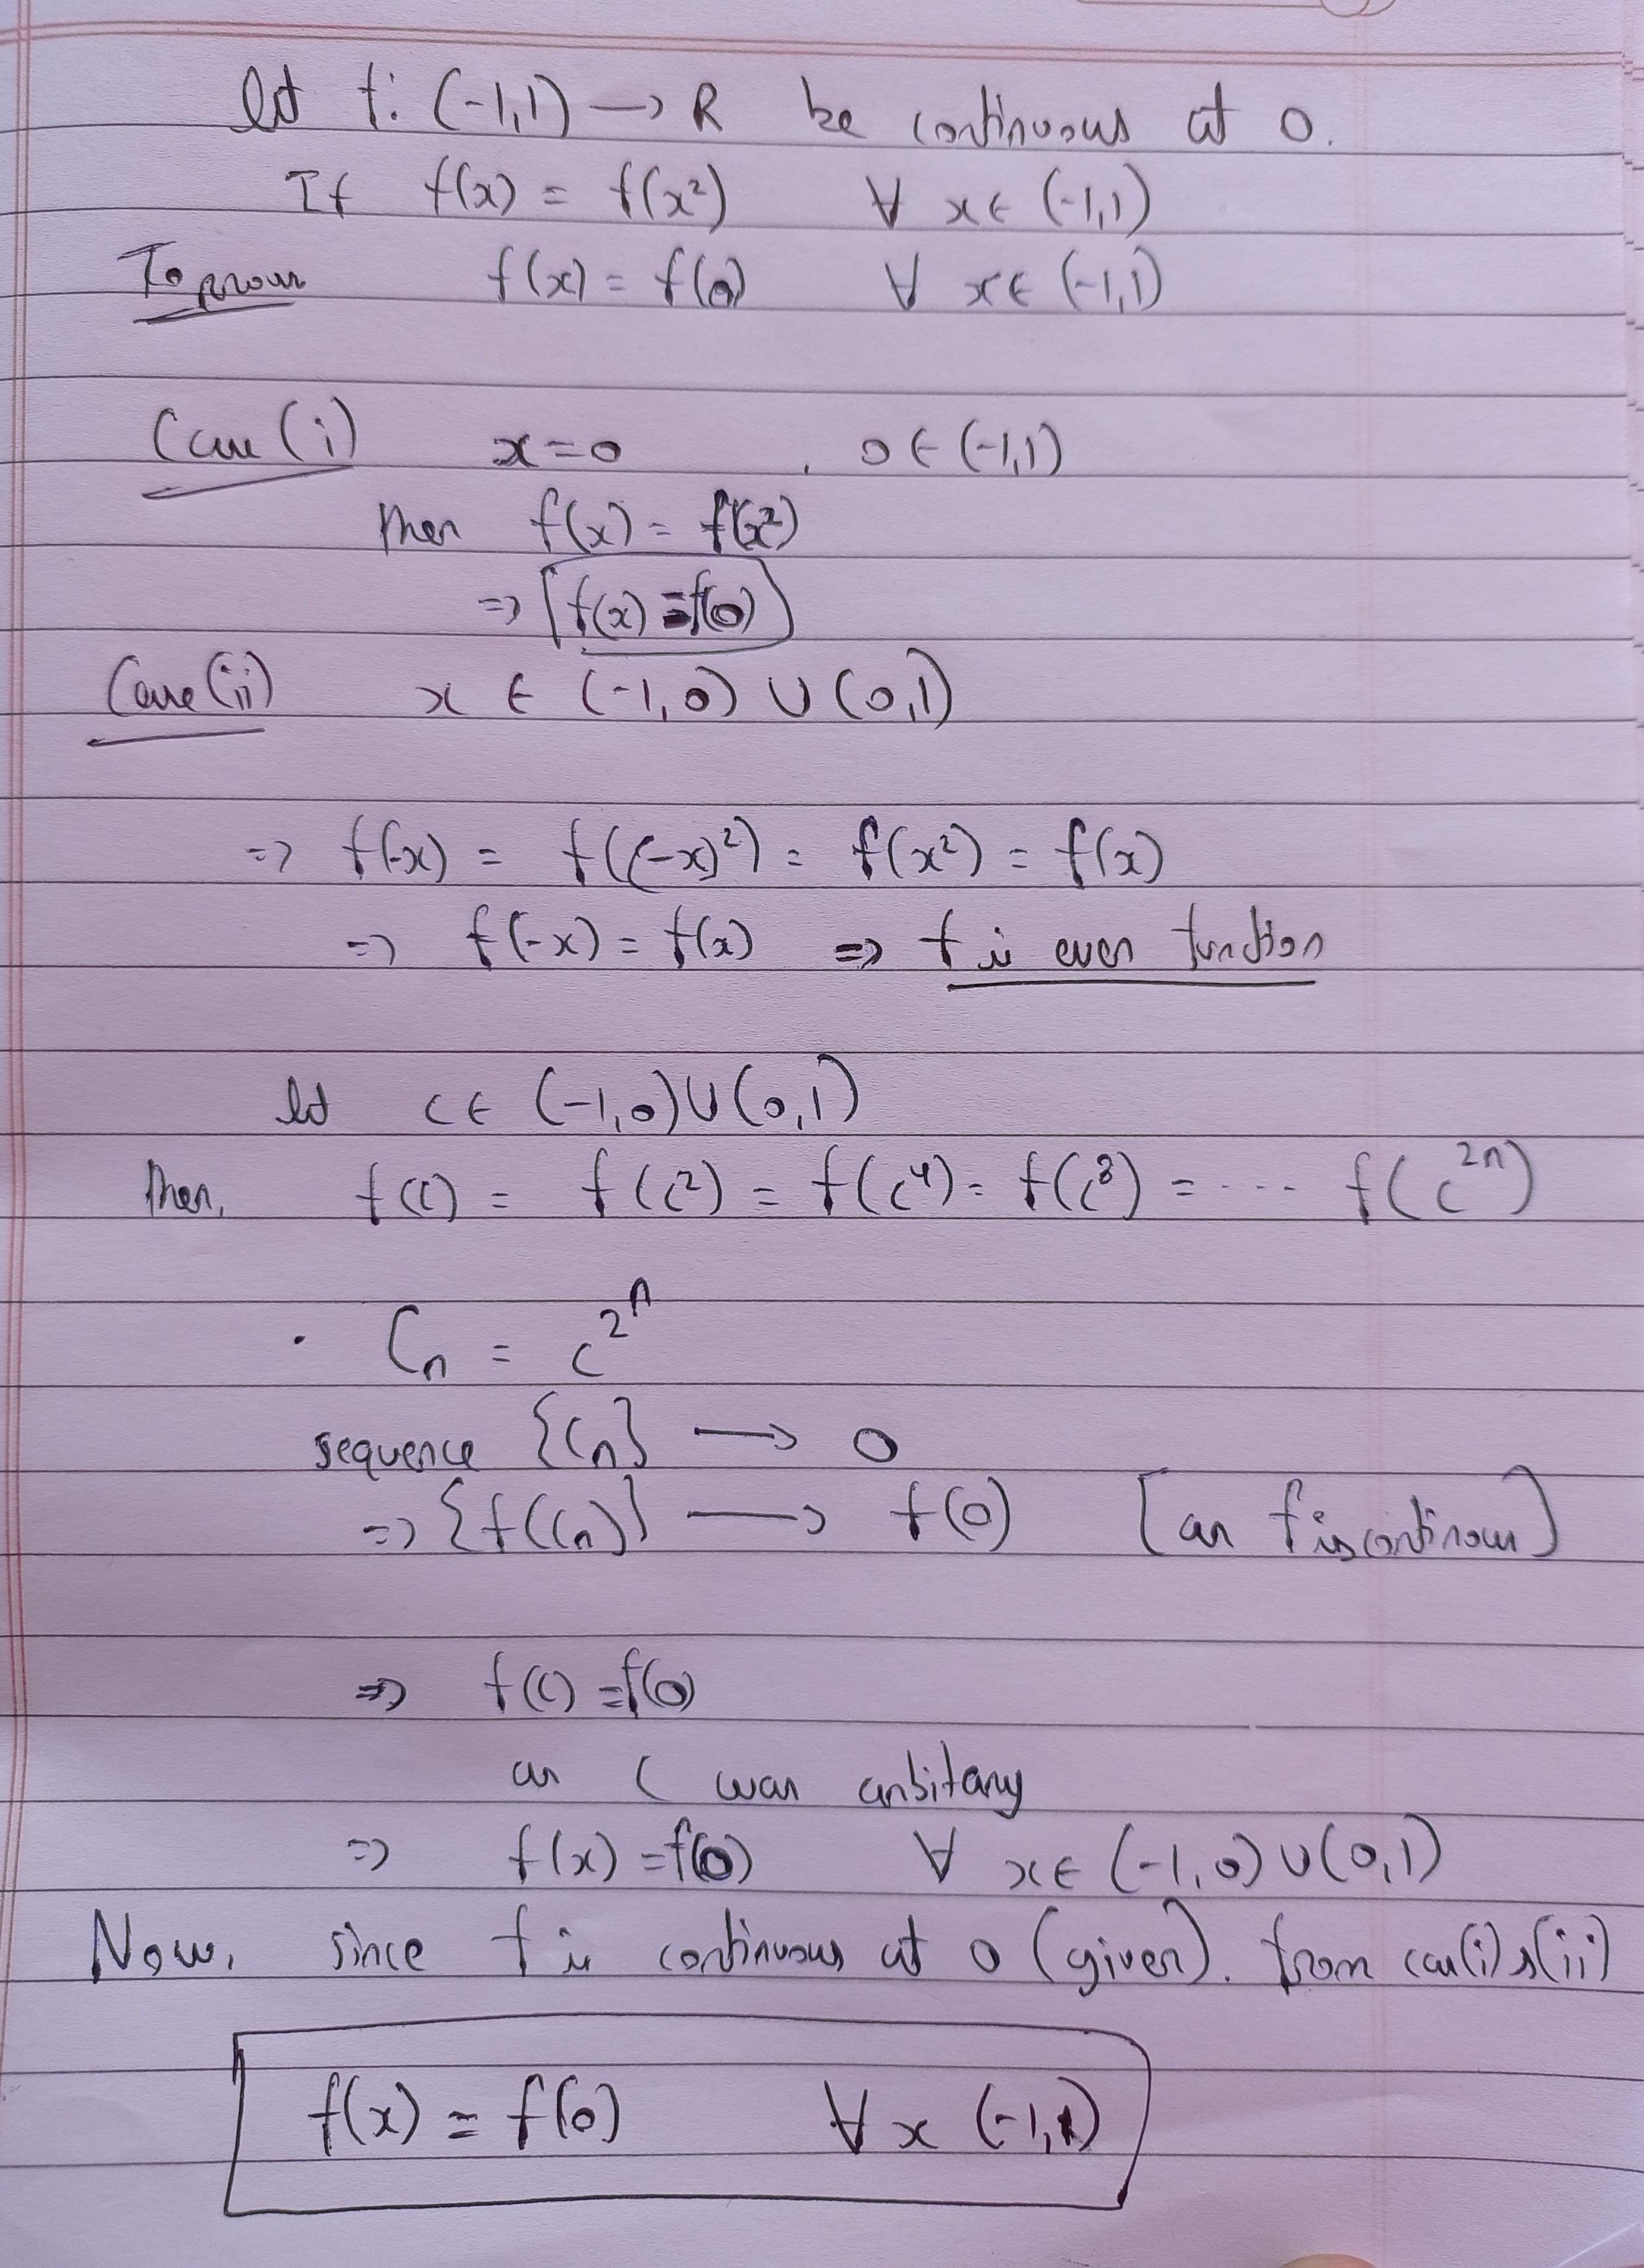 let f: (-1,1) → R be continuous at 0.
If f(x) = f(x²) ∀ x ∈ (-1,1)
To prove f(x) = f(0) ∀ x ∈ (-1,1)
Case (i) x = 0 , 0 ∈ (-1,1)
then f(x) = f(x²)
⇒ f(x) = f(0)
Case (ii) x ∈ (-1,0) ∪ (0,1)
⇒ f(-x) = f((-x)²) = f(x²) = f(x)
⇒ f(-x) = f(x) ⇒ f is even function
let c ∈ (-1,0) ∪ (0,1)
then, f(c) = f(c²) = f(c⁴) = f(c⁸) = ... f(c²ⁿ)
. Cₙ = c^2^n
sequence {Cₙ} → 0
⇒ {f(Cₙ)} → f(0) [as f is continous]
⇒ f(c) = f(0)
as c was arbitary
⇒ f(x) = f(0) ∀ x ∈ (-1,0) ∪ (0,1)
Now, since f is continuous at 0 (given). from case(i) & (ii)
f(x) = f(0) ∀ x (-1,1)